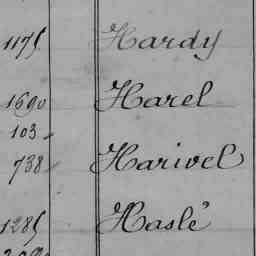 1175 Hardy
1690 Harel
103
738 Harivel
1285 Haslé